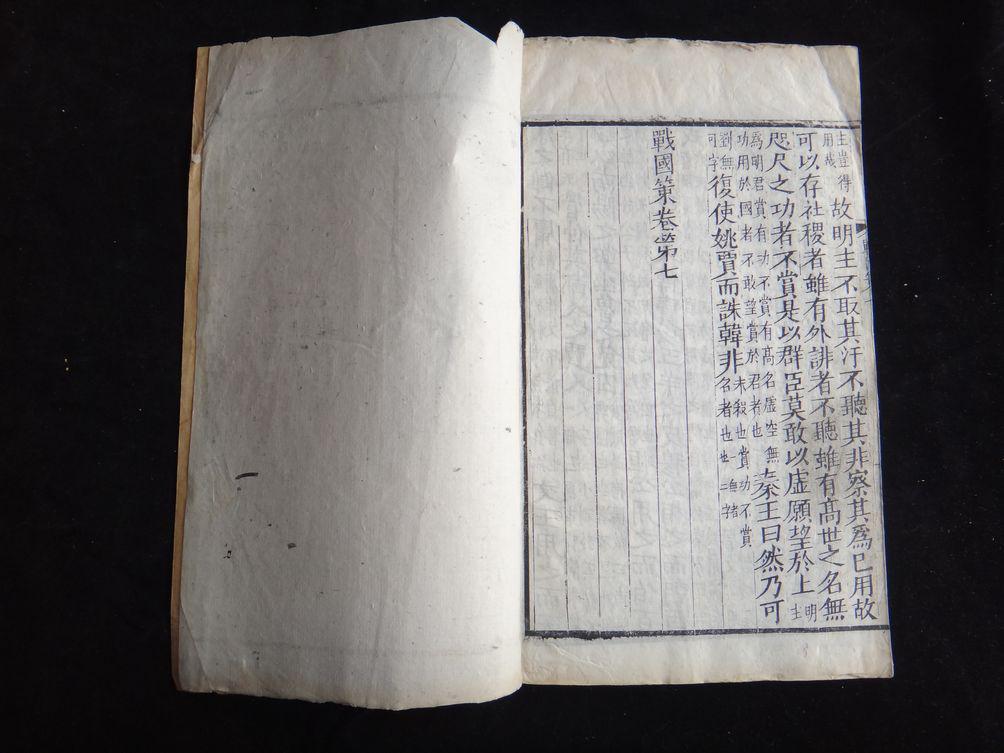 主豈得用哉故明主不取其汗不聽其非察其爲已用故
可以存社稷者雖有外誹者不聽雖有髙世之名無
咫尺之功者不賞是以群臣莫敢以虛願望於上明主
爲明君賞有功不賞有髙名虛空無功用於國者不敢望賞於君者也秦王曰然乃可
劉無可字復使姚賈而誅韓非未殺也賞功不賞名者也
戰國策卷第七